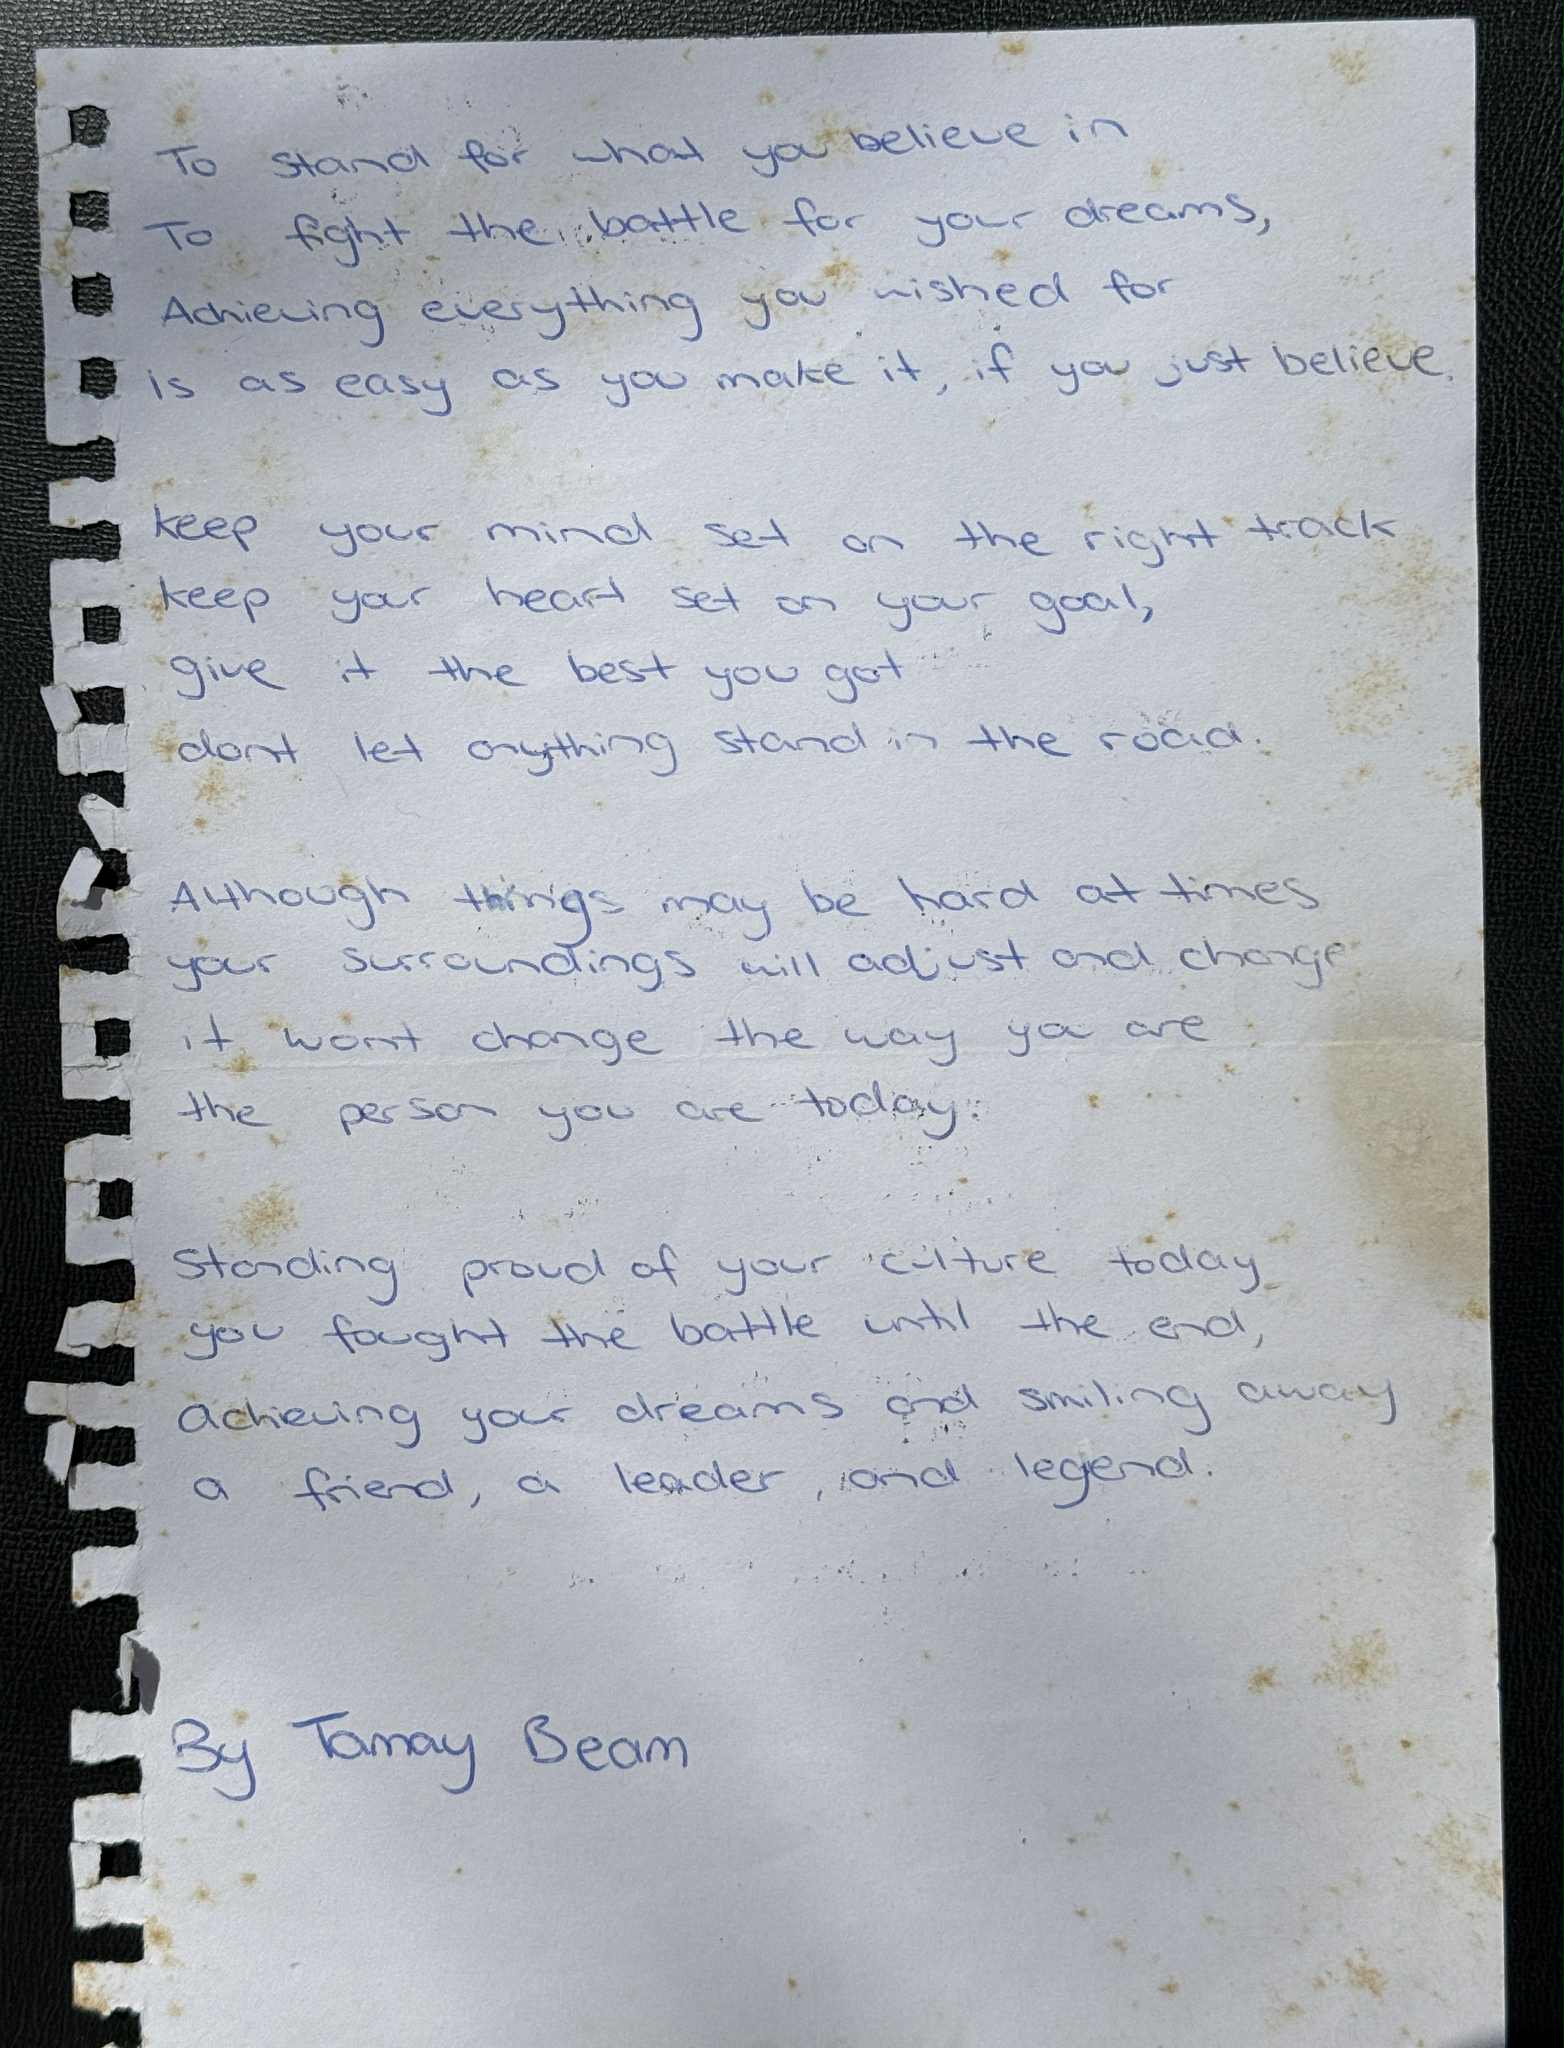 To stand for what you believe in
To fight the battle for your dreams,
Achieving everything you wished for
is as easy as you make it, if you just believe.
keep your mind set on the right track
keep your heart set on your goal,
give it the best you got
dont let anything stand in the road.
Although things may be hard at times
your surroundings will adjust and change
it wont change the way you are
the person you are today.
Standing proud of your culture today
you fought the battle until the end,
achieving your dreams and smiling away
a friend, a leader, and legend.
By Tamay Beam